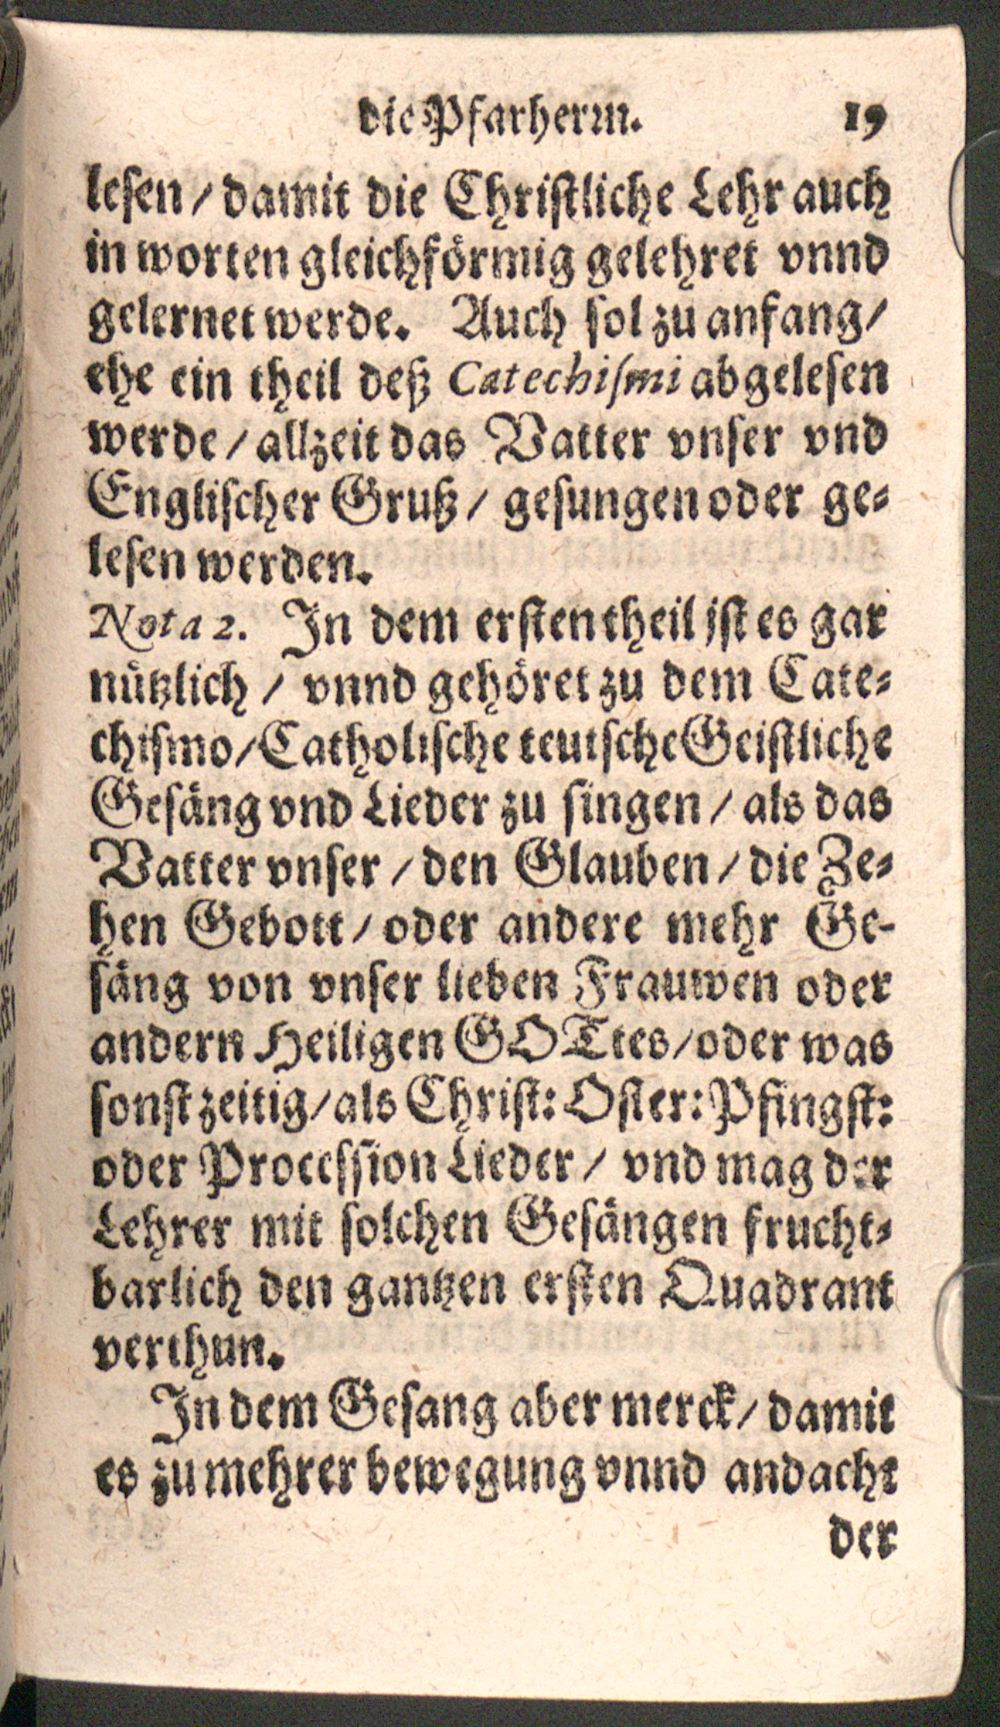 die Pfarherrn. 19
lesen / damit die Christliche Lehr auch
in worten gleichförmig gelehret vnnd
gelernet werde. Auch sol zu anfang /
ehe ein theil deß Catechismi abgelesen
werde / allzeit das Vatter vnser vnd
Englischer Gruß / gesungen oder ge-
lesen werden.
Nota 2. In dem ersten theil ist es gar
nützlich / vnnd gehöret zu dem Cate-
chismo / Catholische teutsche Geistliche
Gesäng vnd Lieder zu singen / als das
Vatter vnser / den Glauben / die Ze-
hen Gebott / oder andere mehr Ge-
säng von vnser lieben Frauwen oder
andern Heiligen GOTtes / oder was
sonst zeitig / als Christ: Oster: Pfingst:
oder Procession Lieder / vnd mag der
Lehrer mit solchen Gesängen frucht-
barlich den gantzen ersten Quadrant
verthun.
In dem Gesang aber merck / damit
es zu mehrer bewegung vnnd andacht
der